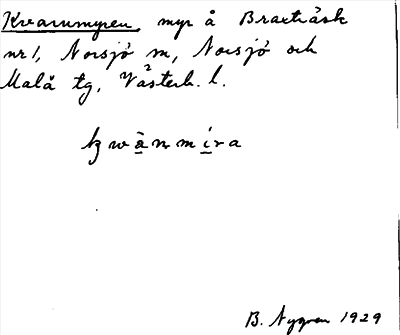 Kvarnmyren, myr å Braxträsk
nr 1, Norsjö sn, Norsjö och
Malå tg, Västerb. l.
B. Nygren 1929